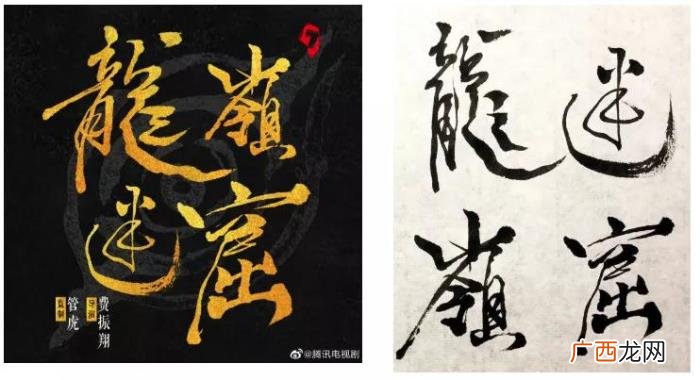 龍嶺
迷窟
监制
管虎
导演
费振翔
@腾讯电视剧
龍迷
嶺窟
广西龙网